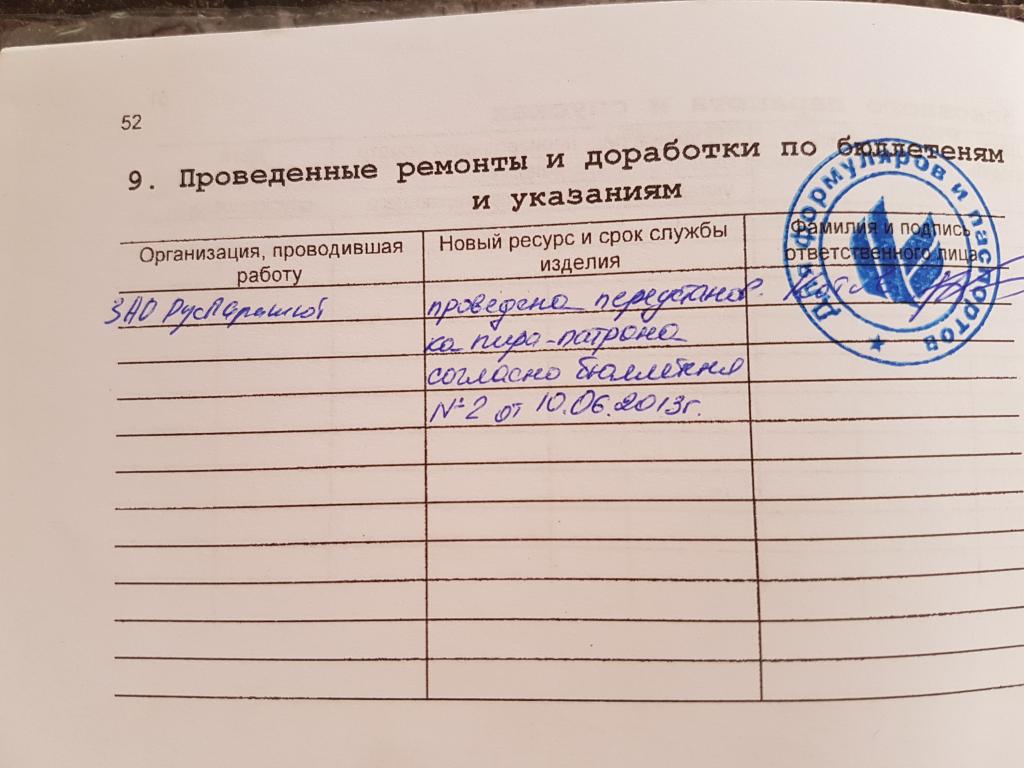 52
9. Проведенные ремонты и доработки по бюллетеням
и указаниям
Организация, проводившая
работу
Новый ресурс и срок службы
изделия
Фамилия и подпись
ответственного лица
ЗАО РусПарашют
проведена перестанов
ка пира-патрона
согласно бюллетеня
№2 от 10.06.2013г.
Для формуляров и паспортов